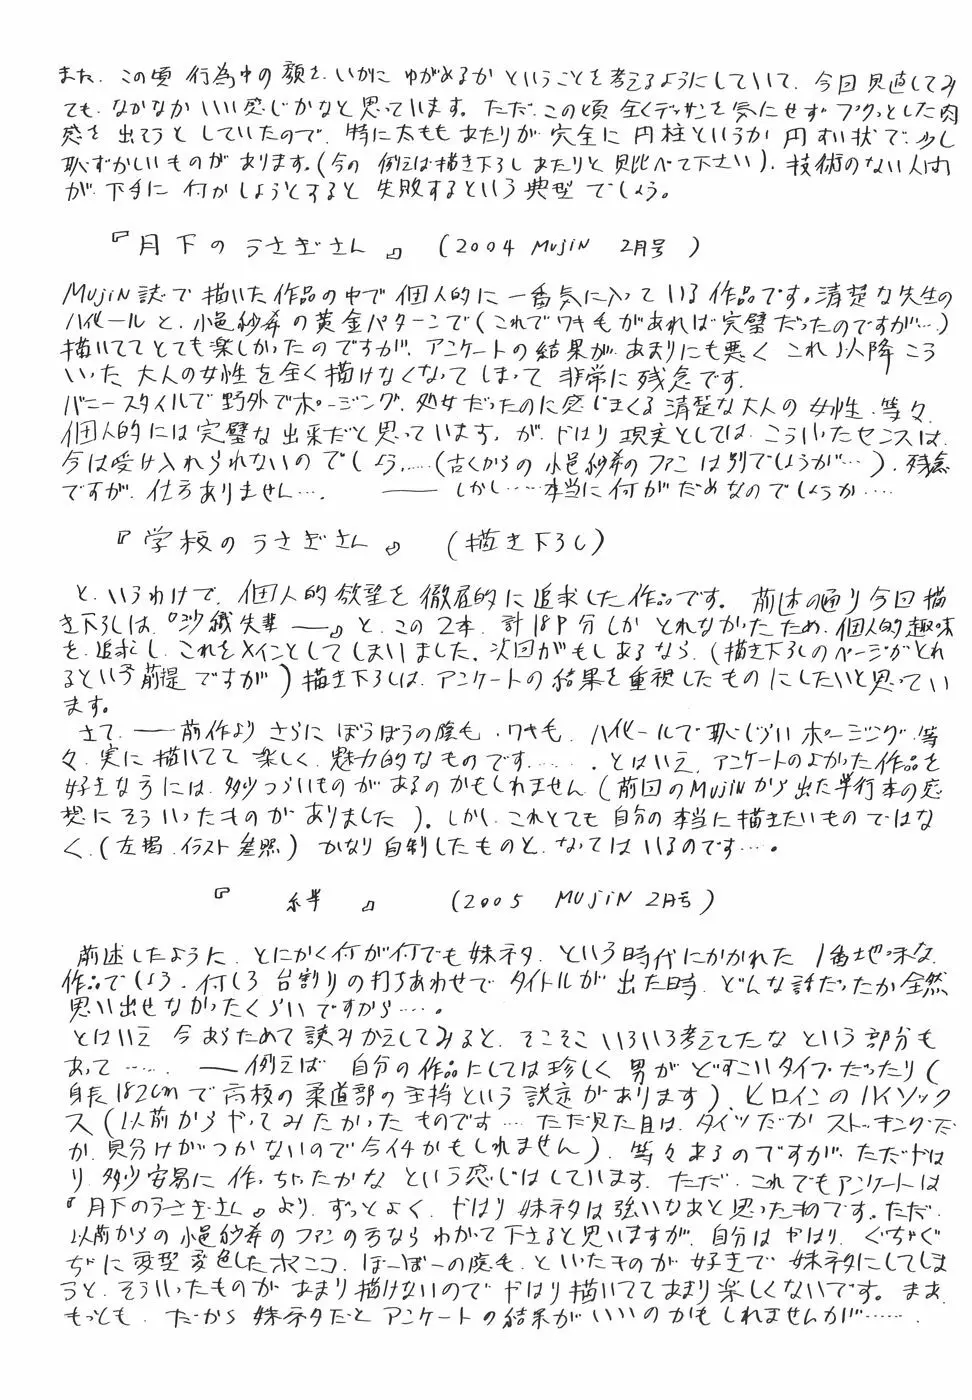 また、この頃 行為中の顔を、いかに ゆがめるか ということを考えるようにしていて、今回見直してみ
ても、なかなかいい感じかなと思っています。ただ、この頃 全くデッサンを気にせず プクッとした肉
感を 出そうと していたので、特に太ももあたりが 完全に 円柱というか 円すい状で、少し
恥ずかしいものがあります。(今の 例えば描き下ろし あたりと、見比べて下さい)、技術のない人間
が、下手に 何かしようとすると 失敗するという 典型 でしょう。
『月下のうさぎさん』 (2004 MUJIN 2月号)
MUJIN誌で 描いた作品の中で 個人的に 一番気に入っている作品です。清楚な先生の
ハイヒールと、小邑紗希の黄金パターンで(これでワキ毛があれば完璧だったのですが…)
描いてて とても楽しかったのですが、アンケートの結果が、あまりにも悪く これ以降 こう
いった 大人の女性を 全く描けなくなって しまって 非常に残念です。
バニースタイルで 野外でポージング、処女だったのに感じまくる 清楚な大人の 女性、等々、
個人的には完璧な出来だと思っています。が、やはり 現実としては、こういったセンスは、
今は受け入れられないのでしょう……(古くからの 小邑紗希のファンは別でしょうが…)、残念
ですが、仕方ありません…。 ―― しかし……本当に何がだめなのでしょうか……
『学校のうさぎさん』 (描き下ろし)
と、いうわけで、個人的欲望を 徹底的に 追求した作品です。前述の通り今回描
き下ろしは、『沙織先輩――』と、この2本、計18P分しか とれなかったため、個人的趣味
を、追求し、これをメインとしてしまいました。次回がもしあるなら、(描き下ろしのページがとれ
るという前提 ですが)描き下ろしは、アンケートの結果を重視したものにしたいと思ってい
ます。
さて、――前作より さらに ぼうぼうの陰毛、ワキ毛、ハイヒールで恥じらいポージング、等
々、実に 描いてて 楽しく、魅力的なものです……。とはいえ、アンケートのよかった作品を
好きな方には、多少つらいものがあるのかもしれません(前回のMUJINから出た単行本の感
想に そういったものが ありました)。しかし、これとても 自分の本当に描きたいもの ではな
く、(左掲、イラスト参照) かなり自制したものと、なってはいるのです…。
『 絆 』 (2005 MUJIN 2月号)
前述したように、とにかく何が何でも妹ネタ、という時代にかかれた 1番地味な
作品でしょう。何しろ 台割りの打ちあわせで タイトルが 出た時、どんな話だったか全然
思い出せなかったくらいですから…。
とはいえ 今あらためて 読みかえしてみると、そこそこ いろいろ考えてたな という部分も
あって……、――例えば 自分の作品にしては珍しく 男が どすこいタイプだったり(
身長182cmで高校の柔道部の主将という設定があります)、ヒロインのハイソック
ス(以前からやってみたかったものです…ただ見た目は、タイツだかストッキングだ
か、見分けがつかないので今イチかもしれません)、等々あるのですが、ただやは
り、多少安易に 作っちゃったかな という感じはしています。ただ、これでもアンケートは
『月下のうさぎさん』より、ずっとよく、やはり 妹ネタは強いなあと思ったものです。ただ、
以前からの 小邑紗希のファンの方なら わかって下さると思いますが、自分は やはり、ぐちゃぐ
ちゃに 変型 変色したマ○コ、ほーぼーの陰毛、といったものが 好きで、妹ネタにしてしま
うと、そういったものが あまり描けないので やはり 描いてて あまり 楽しくないです。まあ、
もっとも、だから 妹ネタだと アンケートの結果がいいのかもしれませんが……。